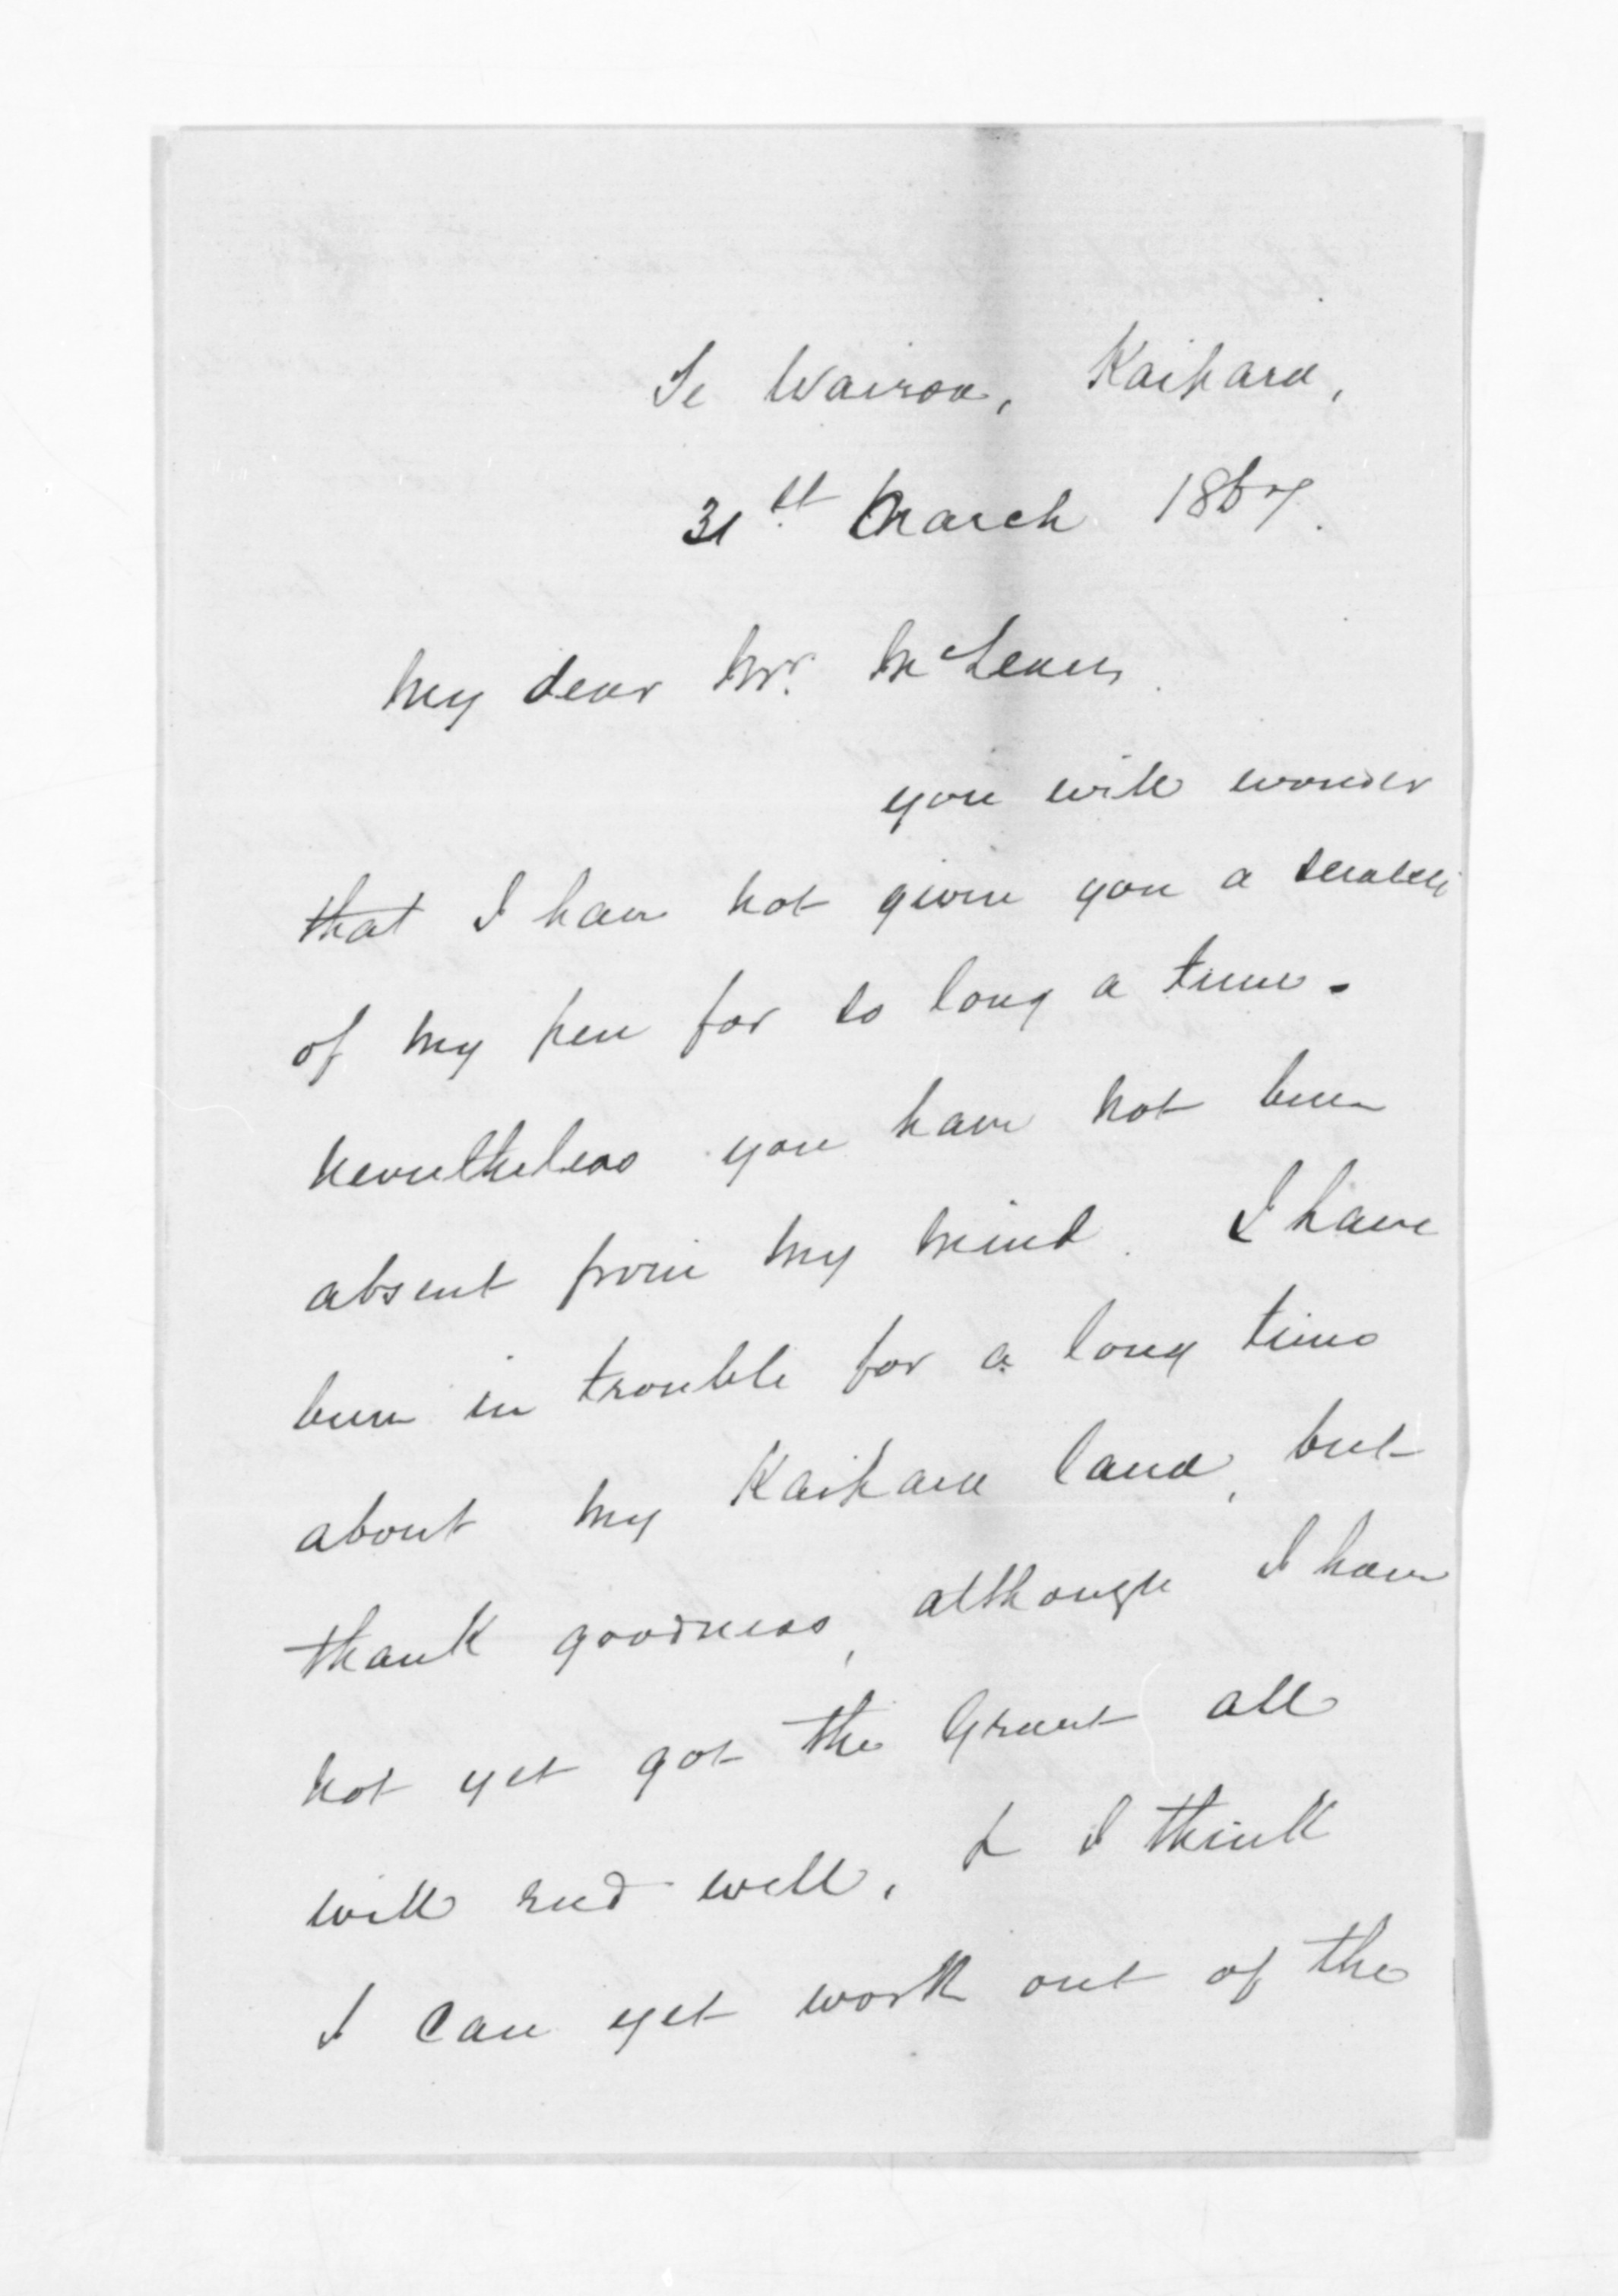 Te Wairoa, Kaipara,
31st. March 1867.
My dear Mr. McLean,
you will wonder
that I have not given you a scratch
of my pen for so long a time.
nevertheless you have not been
absent from my mind. I have
been in trouble for a long time
about my Kaipara land, but
thank goodness, although I have
not yet got the Grant all
will end well, & I think
I can yet work out of the